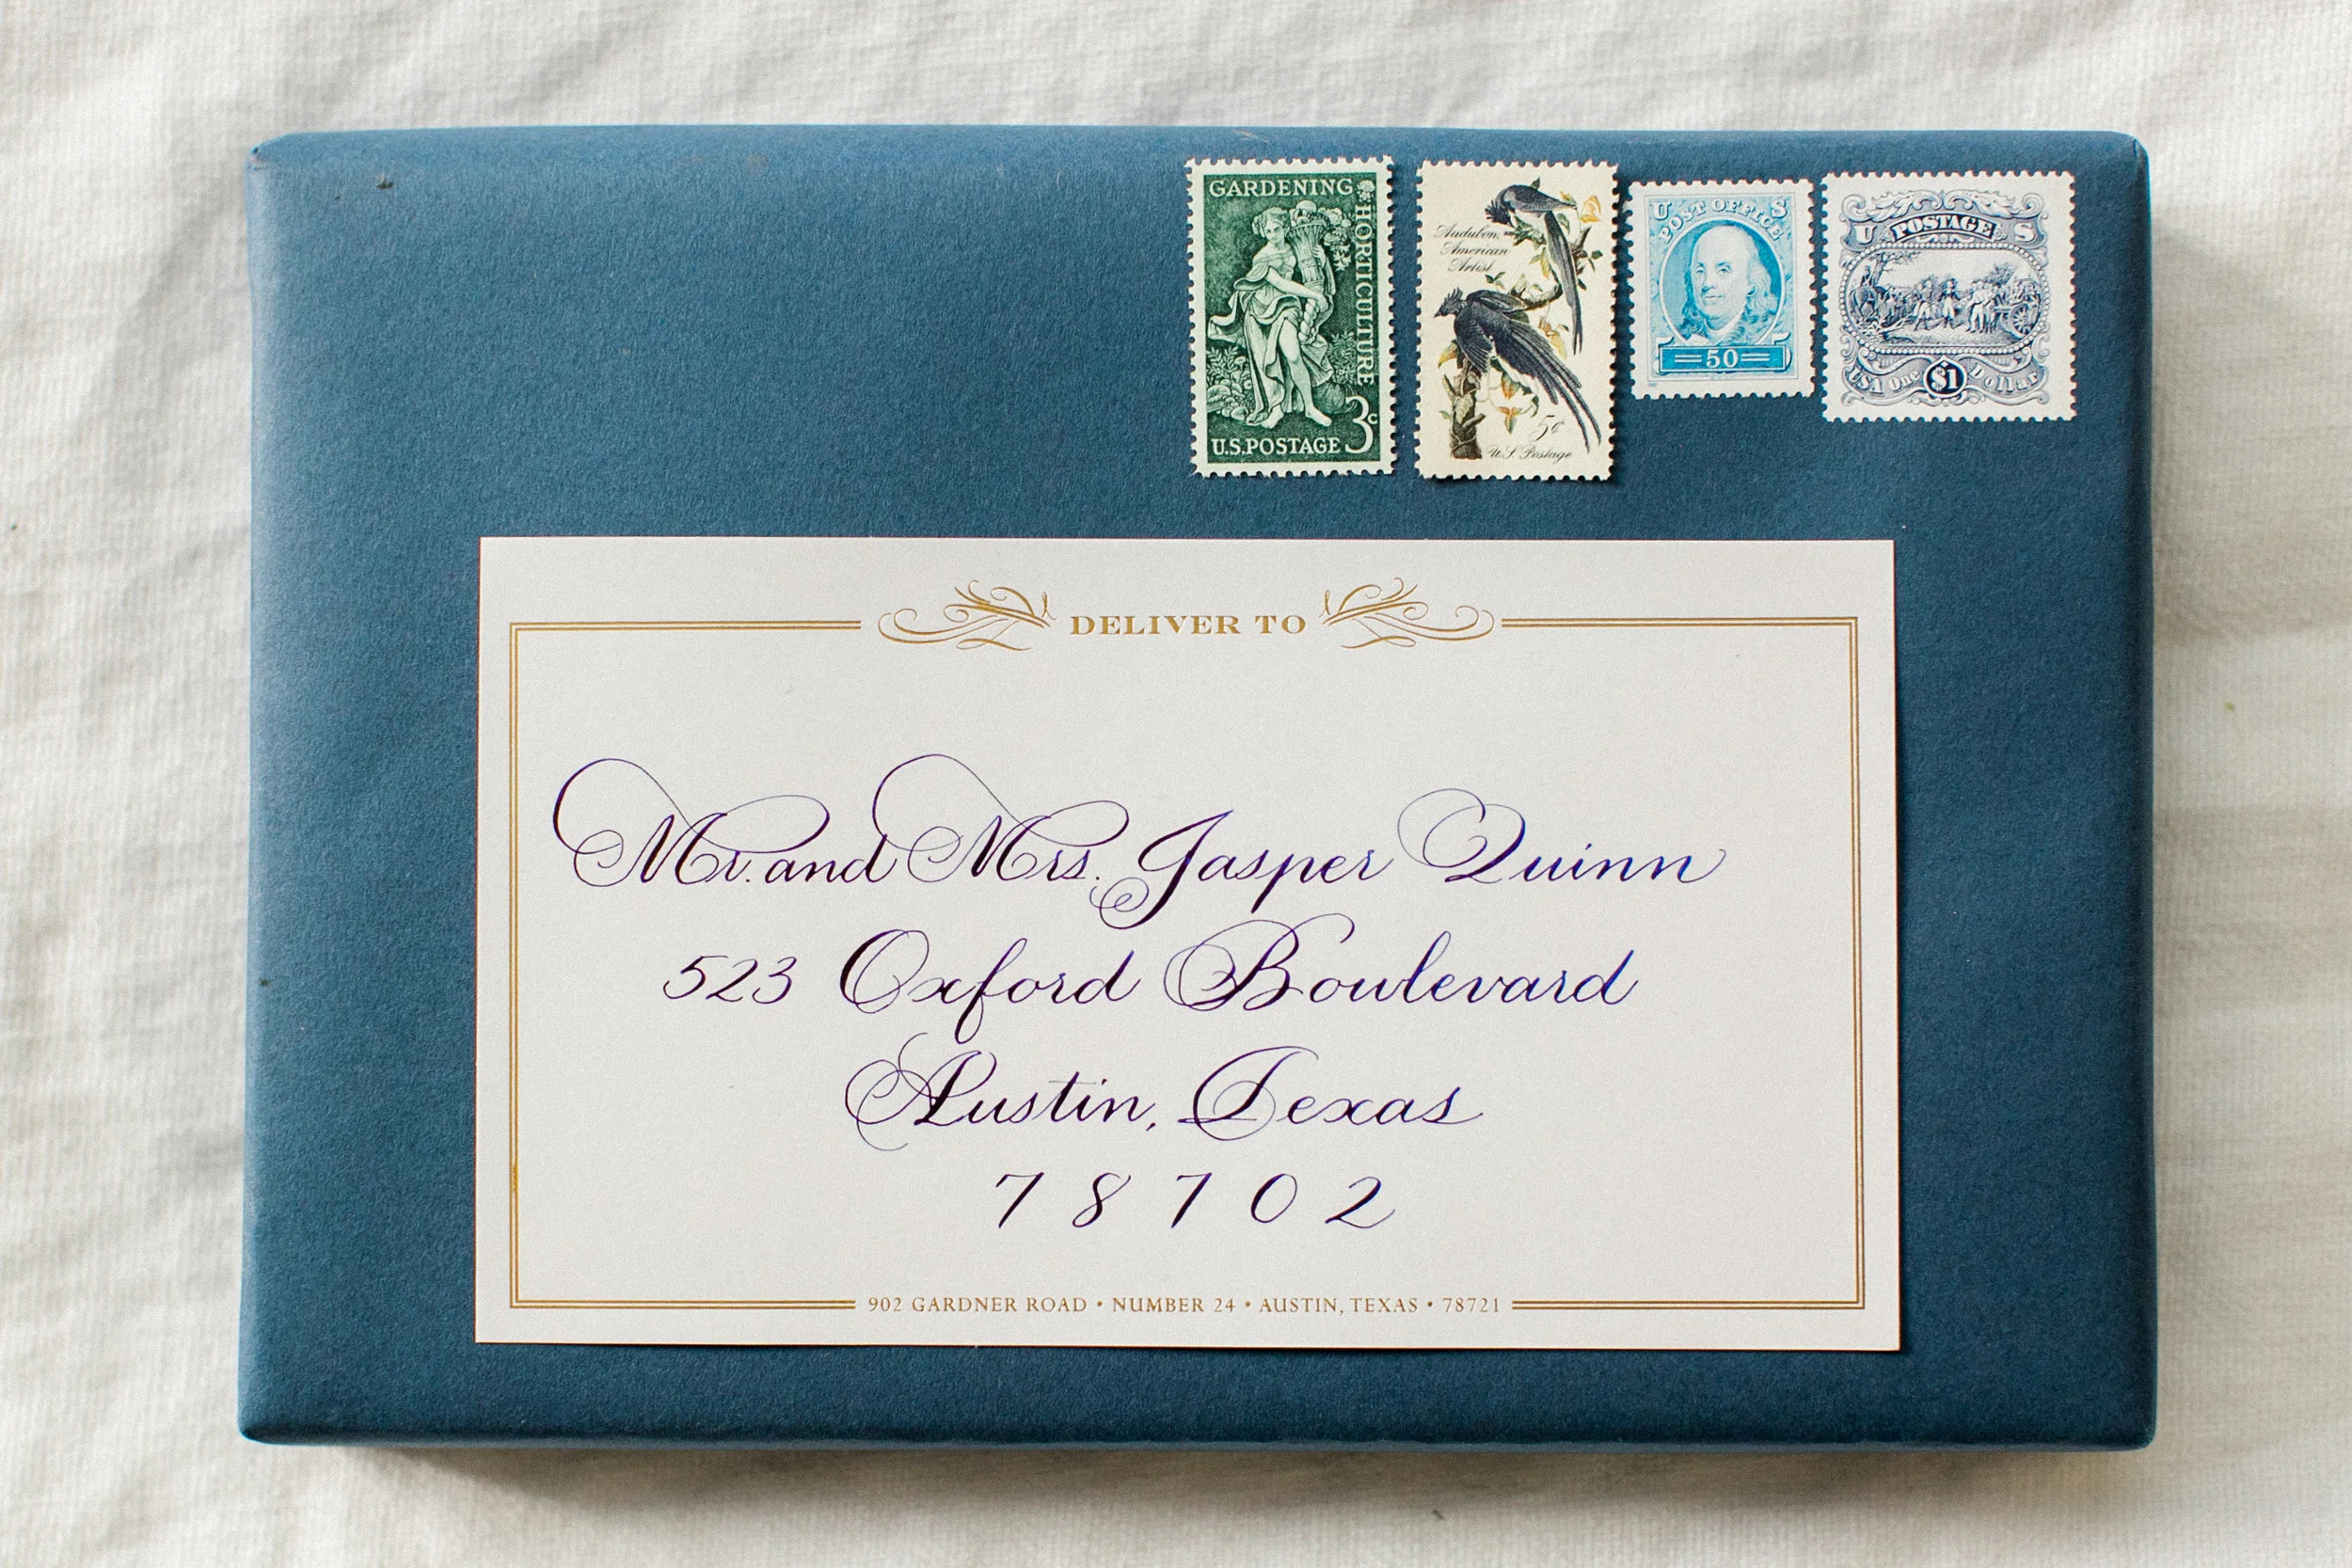 GARDENING
HORTICULTURE
3c
U.S.POSTAGE
Audubon
American
Artist
5¢
U.S. Postage
U S
POST OFFICE
50
U POSTAGE S
USA One $1 Dollar
DELIVER TO
Mr. and Mrs. Jasper Quinn
523 Oxford Boulevard
Austin, Texas
7 8 7 0 2
902 GARDNER ROAD • NUMBER 24 • AUSTIN, TEXAS • 78721